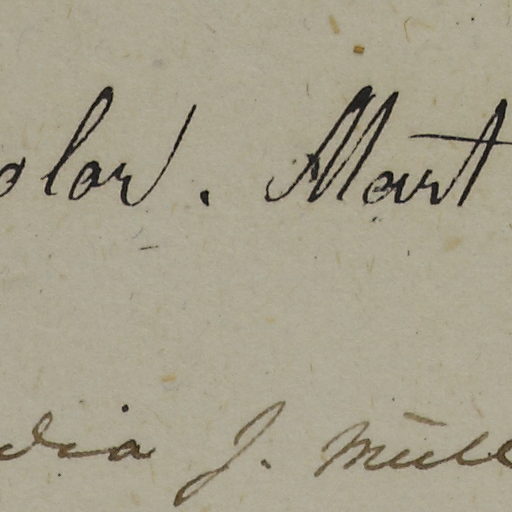 olor. Mart
dia J. Müll